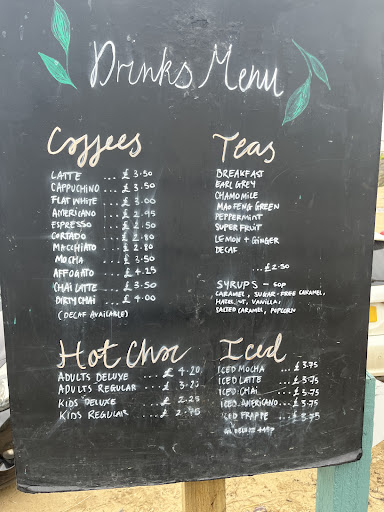 Drinks Menu
Coffees
LATTE ... £ 3.50
CAPPUCHINO ... £ 3.50
FLAT WHITE ... £ 3.00
AMERICANO ... £ 2.95
ESPRESSO ... £ 2.50
CORTADO ... £ 2.80
MACCHIATO ... £ 2.80
MOCHA ... £ 3.50
AFFOGATO ... £ 4.25
CHAI LATTE ... £ 3.50
DIRTY CHAI ... £ 4.00
(DECAF AVAILABLE)
Teas
BREAKFAST
EARL GREY
CHAMOMILE
MAO FENG GREEN
PEPPERMINT
SUPER FRUIT
LEMON + GINGER
DECAF
... £2.50
SYRUPS - 50P
CARAMEL, SUGAR-FREE CARAMEL,
VANILLA,
SALTED CARAMEL, POPCORN
Hot Choc
ADULTS DELUXE ... £ 4.20
ADULTS REGULAR ... £ 3.20
KIDS DELUXE ... £ 2.25
KIDS REGULAR ... £ 2.75
Iced
ICED MOCHA ... £3.75
ICED LATTE ... £3.75
ICED CHAI ... £3.75
ICED AMERICANO ... £3.75
ICED FRAPPE ... £3.75